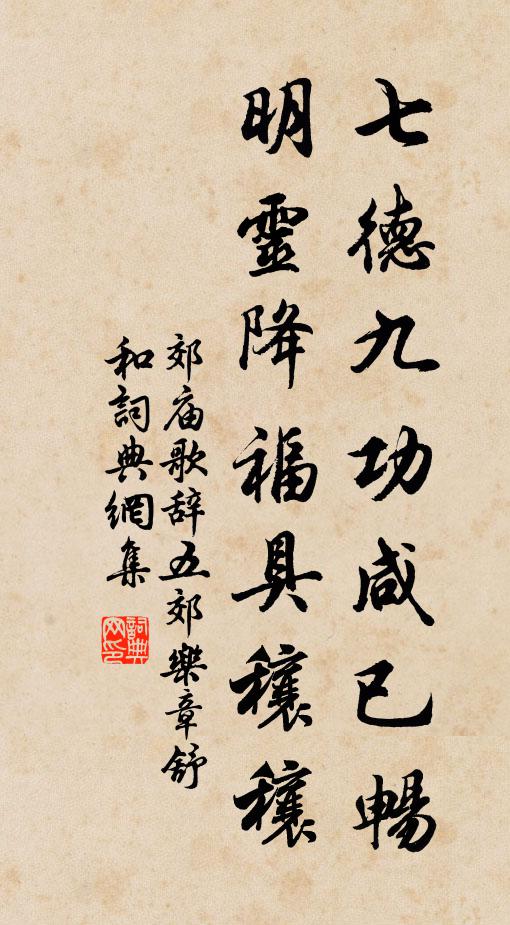 七德九功咸已暢
明靈降福具穰穰
郊庙歌辞五郊樂章舒
和詞典網集
詞典網印